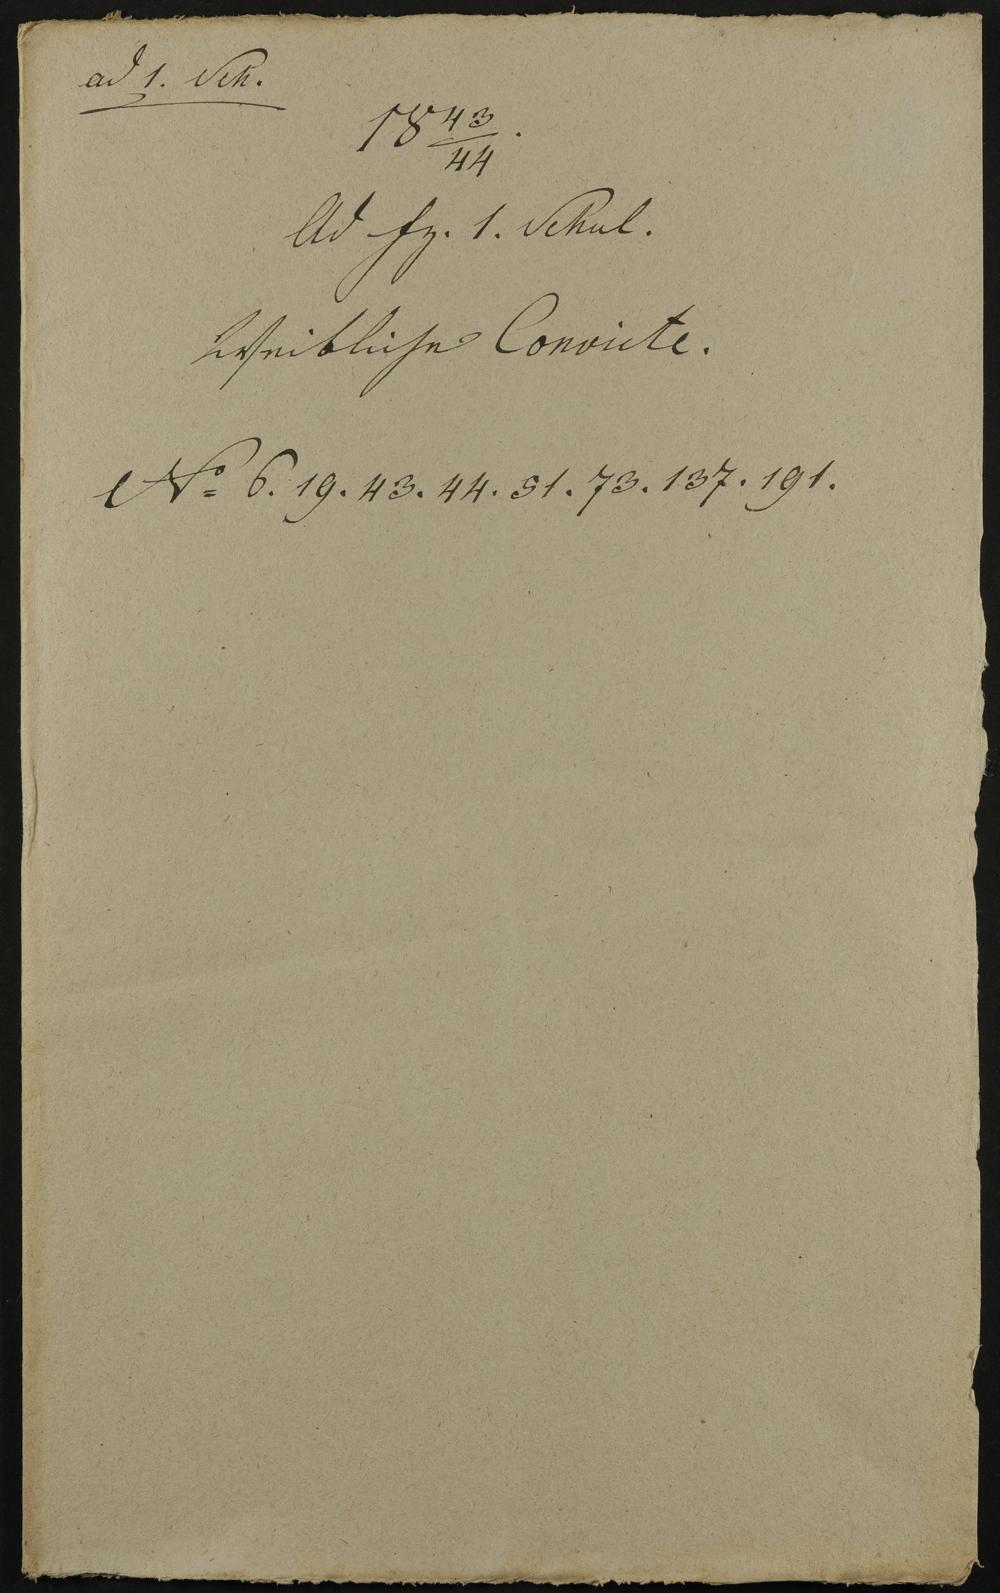 ad 1. Sch.
18 43/44.
Ad fz. 1. Schul.
Weibliche Convicte.
No. 6. 19. 43. 44. 51. 73. 137. 191.